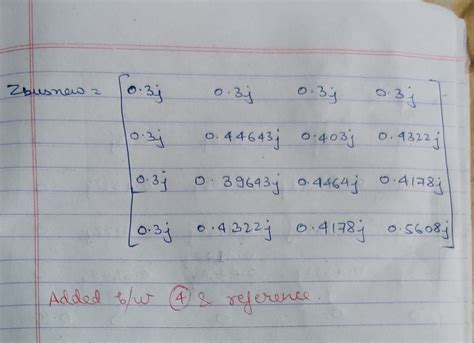 Zbusnew = 0.3j 0.3j 0.3j 0.3j
0.3j 0.44643j 0.403j 0.4322j
0.3j 0.39643j 0.4464j 0.4178j
0.3j 0.4322j 0.4178j 0.5608j
Added b/w 4 & reference.